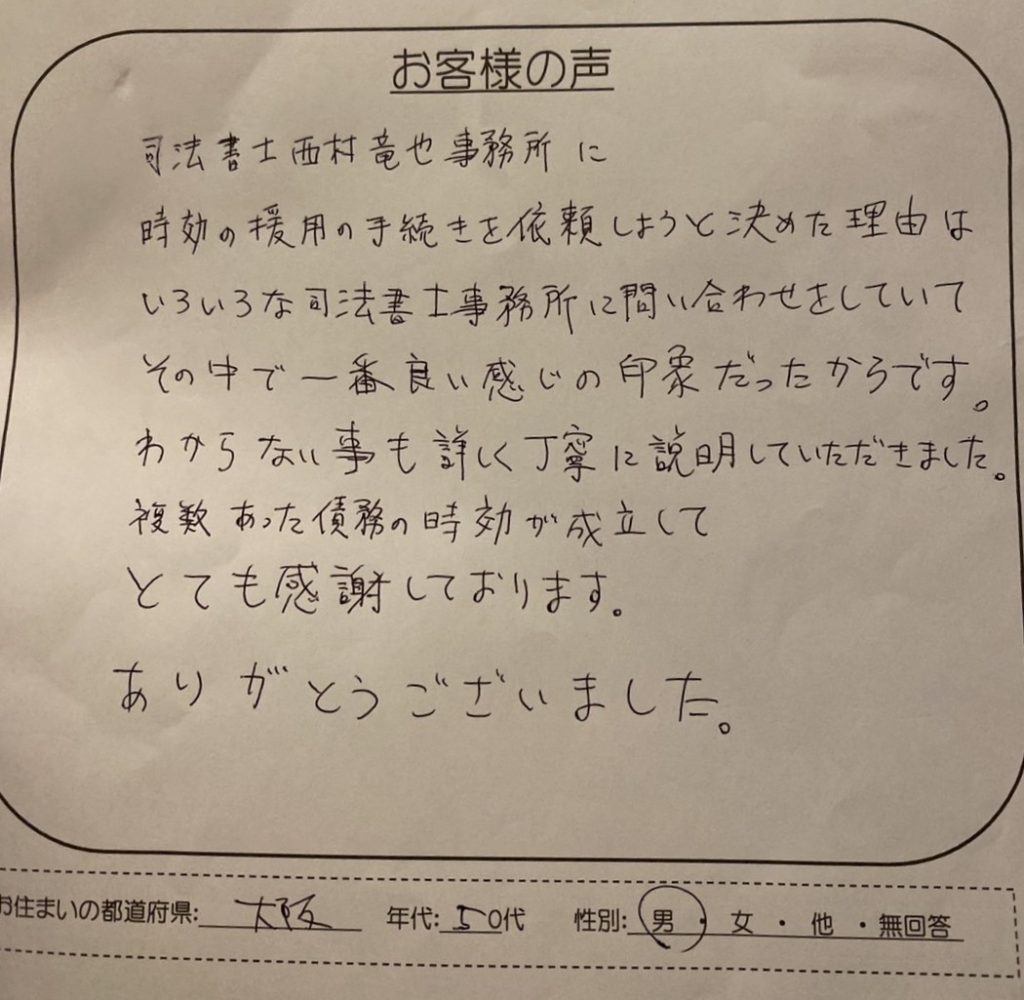 お客様の声
司法書士西村竜也事務所に
時効の援用の手続きを依頼しようと決めた理由は
いろいろな司法書士事務所に問い合わせをしていて
その中で一番良い感じの印象だったからです。
わからない事も詳しく丁寧に説明していただきました。
複数あった債務の時効が成立して
とても感謝しております。
ありがとうございました。
お住まいの都道府県: 大阪 年代: 50代 性別: 男・女・他・無回答